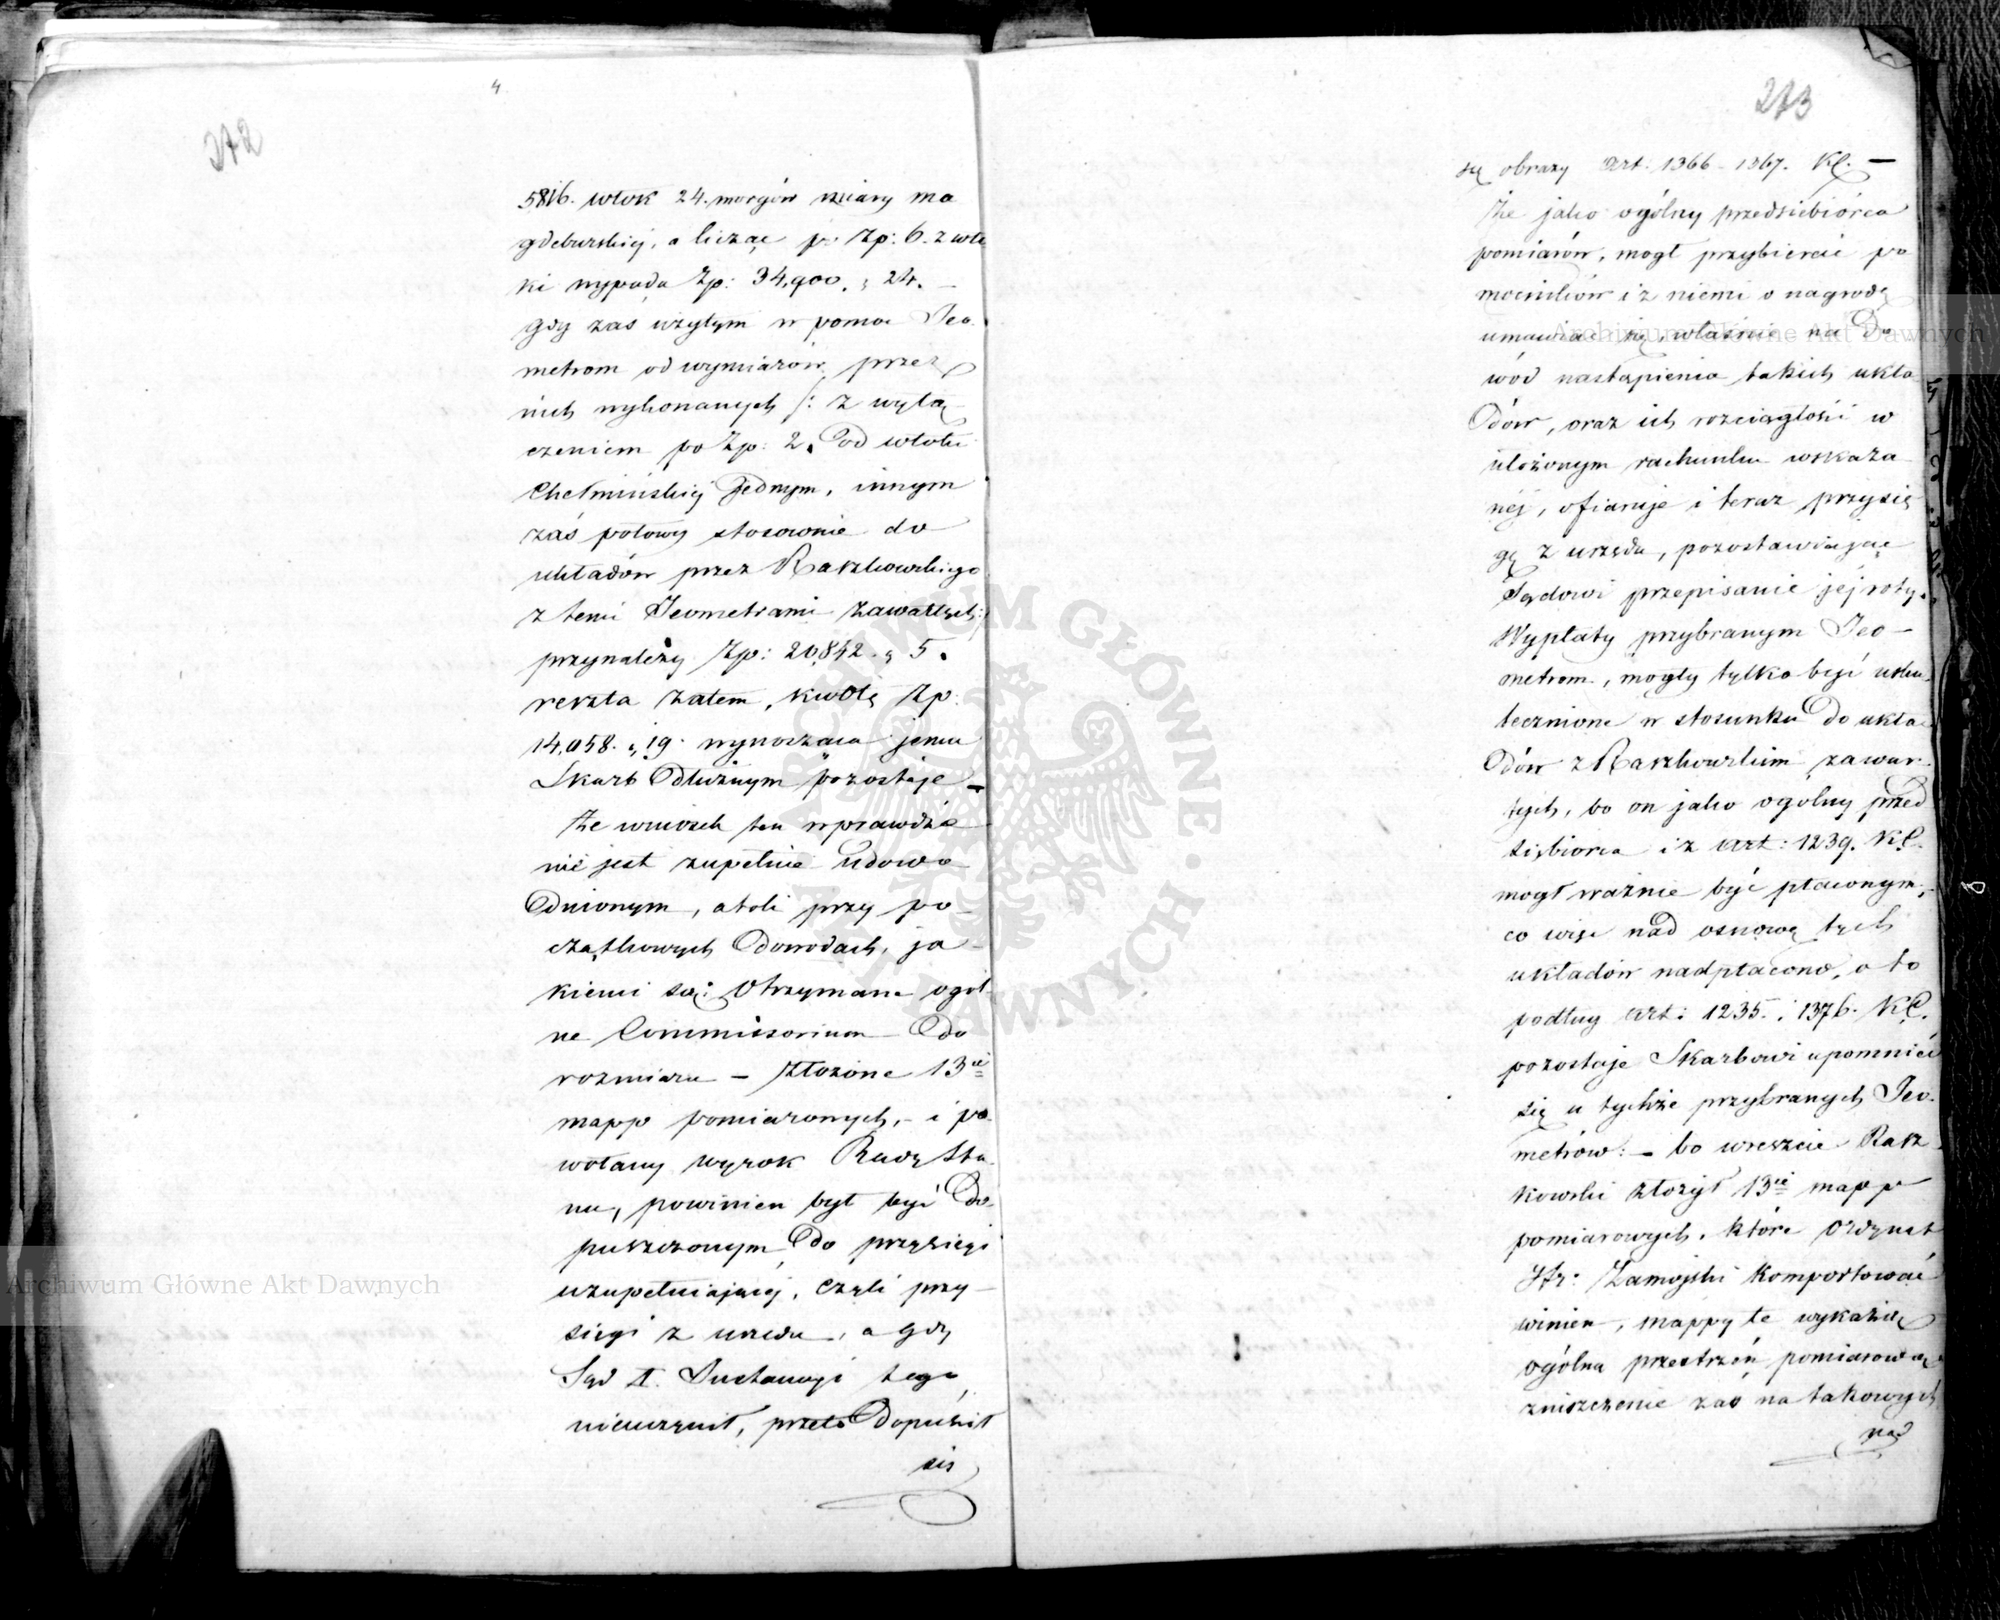 272
5816. włok 24. morgów miary ma
gdeburskiej, a licząc po Zp: 6. z włó
ki wypada Zp: 34,900. „ 24. —
Gdy zaś użytym w pomoc Jeo.
metrom od wymiarów przez
nich wykonanych /: z wyłą
czeniem po Zp: 2. od włóki
Chełmińskiej jednym, innym
zaś połowy stosownie do
układów przez Raszkowskiego
z temi Jeometrami zawartych :/
przynależy Zp: 20,842. „ 5.
reszta zatem, kwotę Zp:
14,058. „ 19. wynosząca jemu
Skarb dłużnym pozostaje —
Że wniosek ten wprawdzie
nie jest zupełnie udowo
dnionym, atoli przy po-
czątkowych dowodach, ja-
kiemi są: Otrzymane ogól
ne Commissorium do
rozmiaru — złożone 13cie
mapp pomiarowych, — i po
wołany wyrok Rady Sta
nu, powinien był być do-
puszczonym do przysięgi
uzupełniającej, czyli przy-
sięgi z urzędu, a gdy
Sąd II. Instancyi tego
nieuczynił, przeto dopuścił
się
273
się obrazy Art. 1366 - 1367. KC. —
Że jako ogólny przedsiebiórca
pomiarów, mógł przybierać po
mocników i z niemi o nagrodę
umawiać się, właśnie na do
wód nastąpienia takich ukła
dów, oraz ich rozciągłości w
ułożonym rachunku wskaza
néj, ofiaruje i teraz przysię
gę z urzędu, pozostawiając
Sądowi przepisanie jej roty.
Wypłaty przybranym Jeo-
metrom, mogły tylko być usku
tecznione w stosunku do ukła
dów z Raszkowskim zawar
tych, bo on jako ogólny przed
siębiorca i z Art: 1239. KC.
mógł ważnie być płaconym,
co więc nad osnowę tych
układów nadpłacono, o to
podług Art: 1235. i 1376. KC.
pozostaje Skarbowi upomnieć
się u tychże przybranych Jeo-
metrów: — bo wreszcie Rasz
kowski złożył 13cie mapp
pomiarowych, które Ordynat
Hr: Zamojski komportować
winien, mappy te wykażą
ogólną przestrzeń pomiarową,
zniszczenie zaś na takowych
nad
Archiwum Główne Akt Dawnych
Archiwum Główne Akt Dawnych
ARCHIWUM GŁÓWNE AKT DAWNYCH